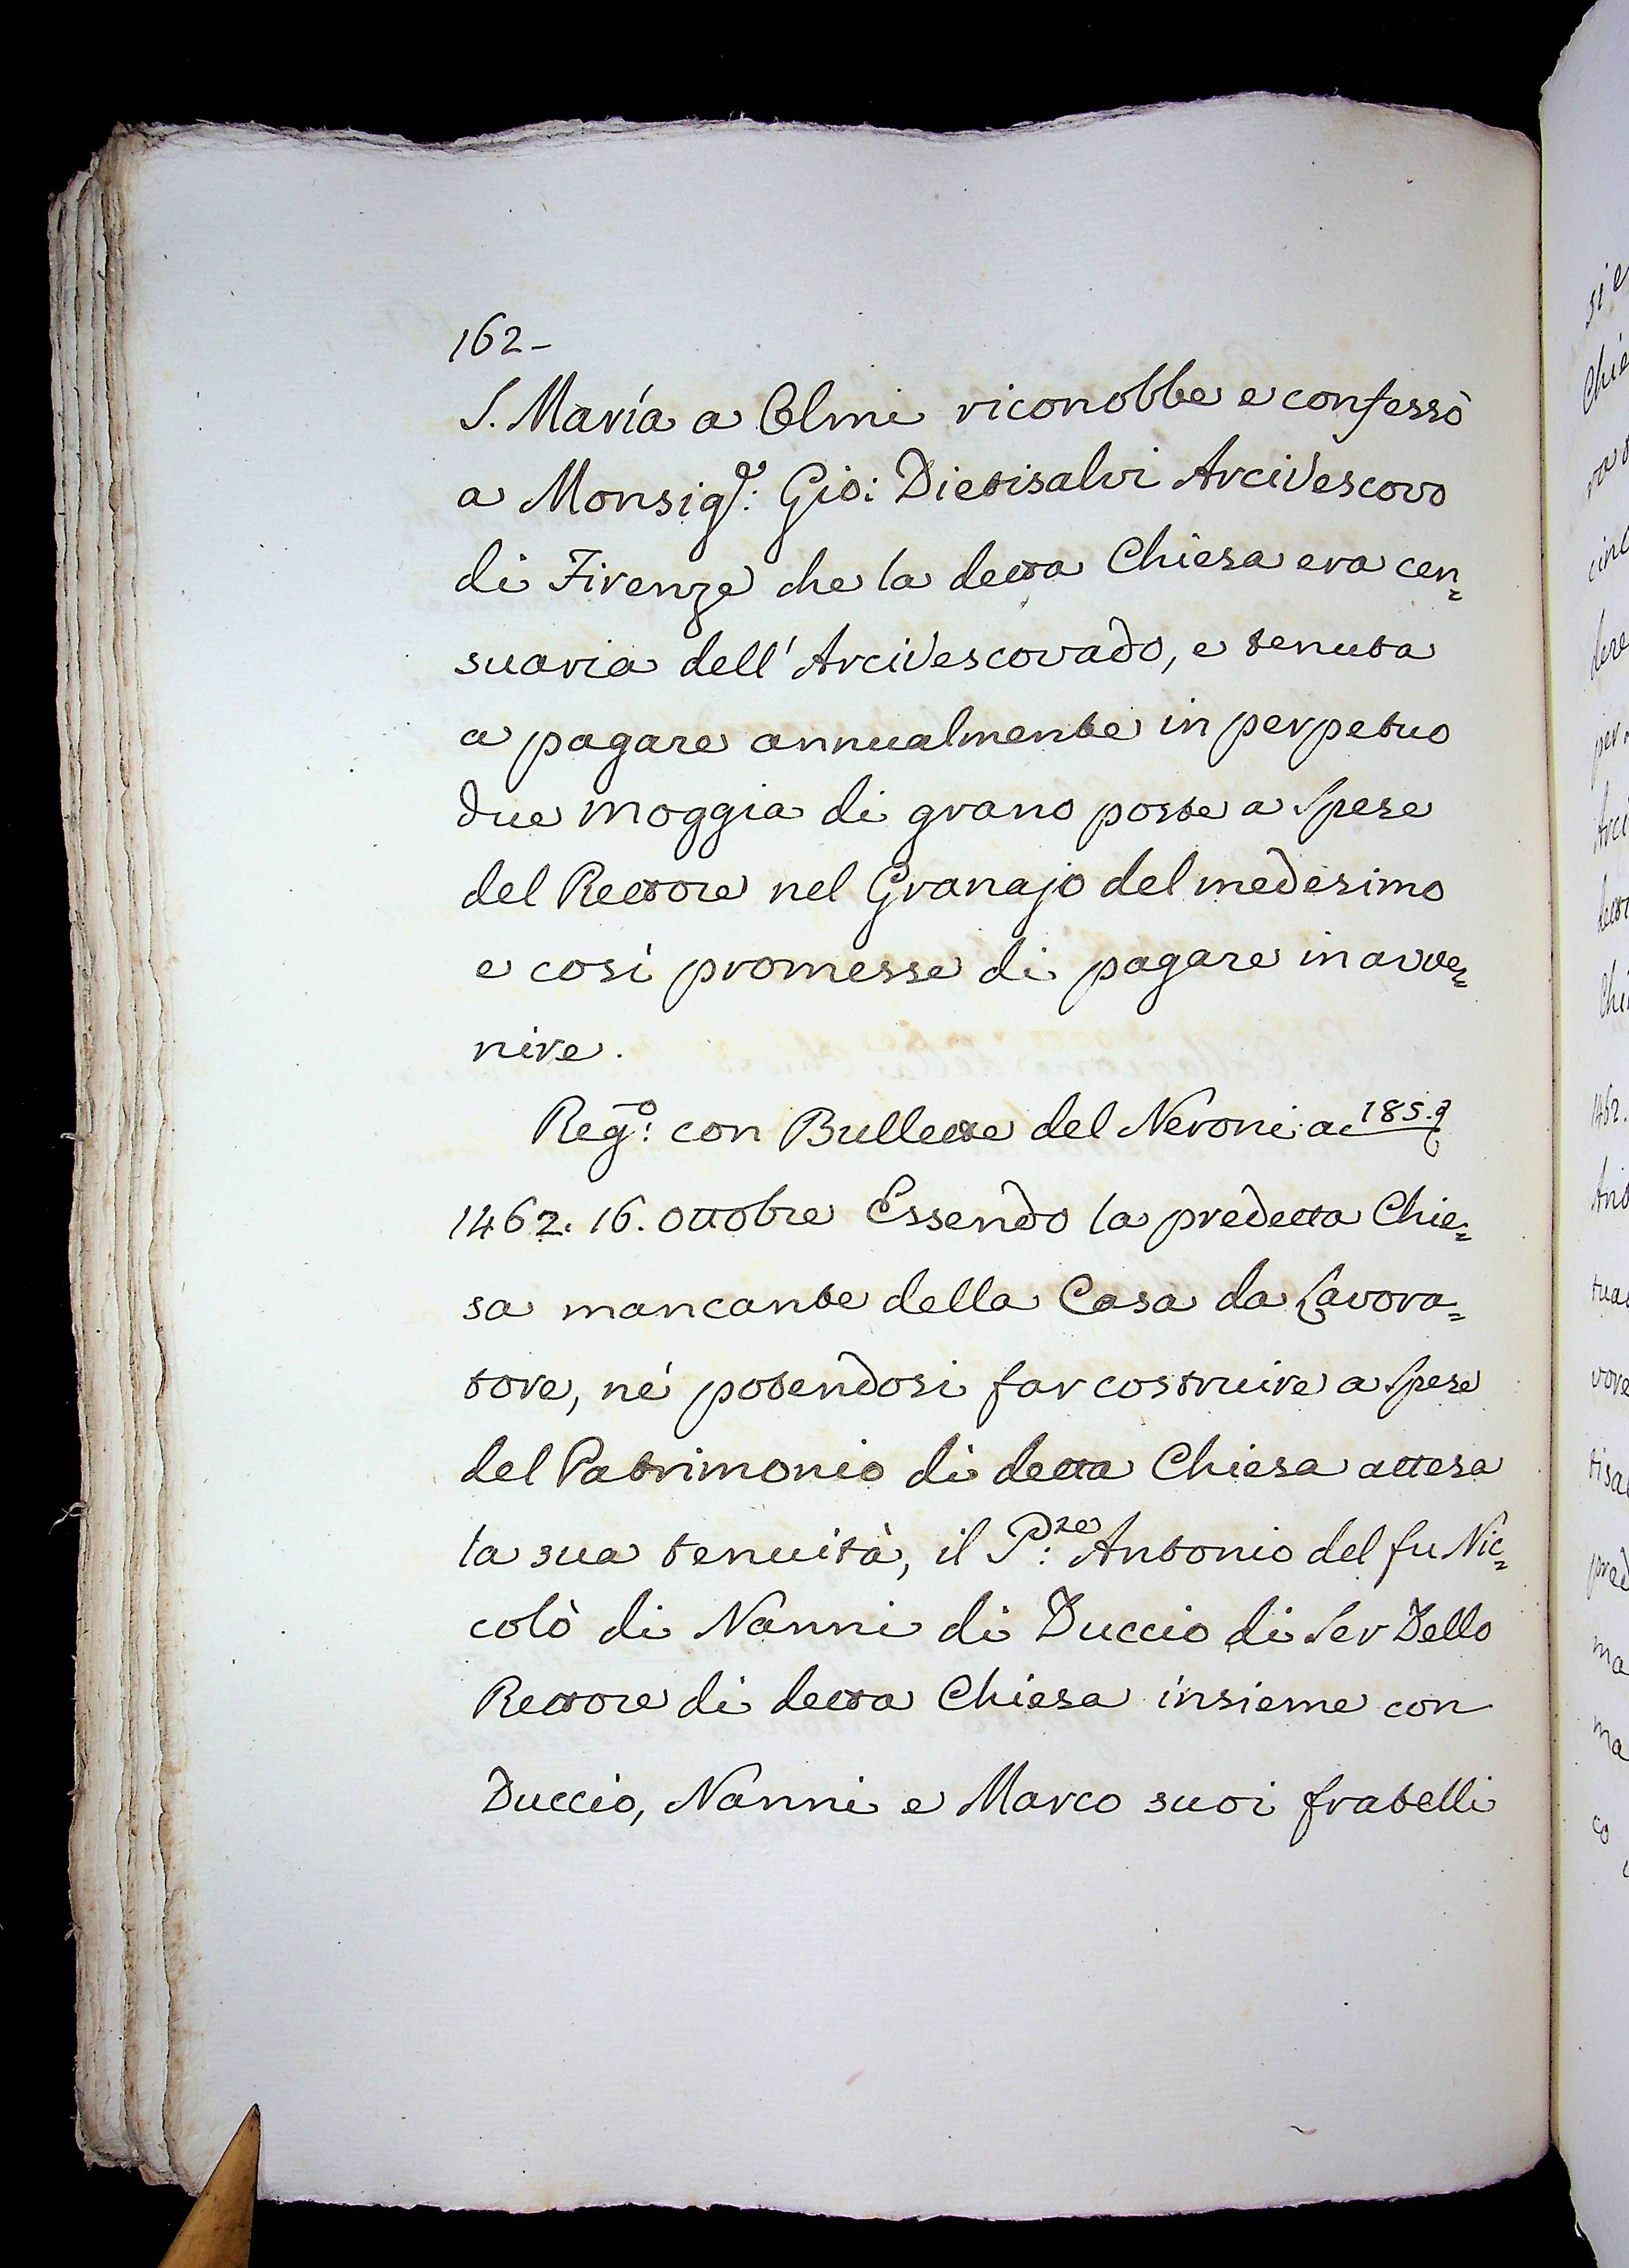 162-
S. María a Olmi riconobbe e confessò
a Monsig.r: Gio: Dietisalvi ArciVescovo
di Firenze che la detta Chiesa era cen=
suaria dell'ArciVescovado, e tenuta
a pagare annualmente in perpetuo
due moggia di grano poste a Spese
del Rettore nel Granajo del medesimo
e così promesse di pagare in avve=
nire.
Reg.o: con Bullette del Neroni a c 185.
1462. 16. Ottobre Essendo la predetta Chie=
sa mancante della Casa da Lavora=
tore, né potendosi far costruire a Spese
del Patrimonio di detta Chiesa attesa
la sua tenuità, il P.re: Antonio del fu Nic=
colò di Nanni di Duccio di Ser Dello
Rettore di detta Chiesa insieme con
Duccio, Nanni e Marco suoi fratelli